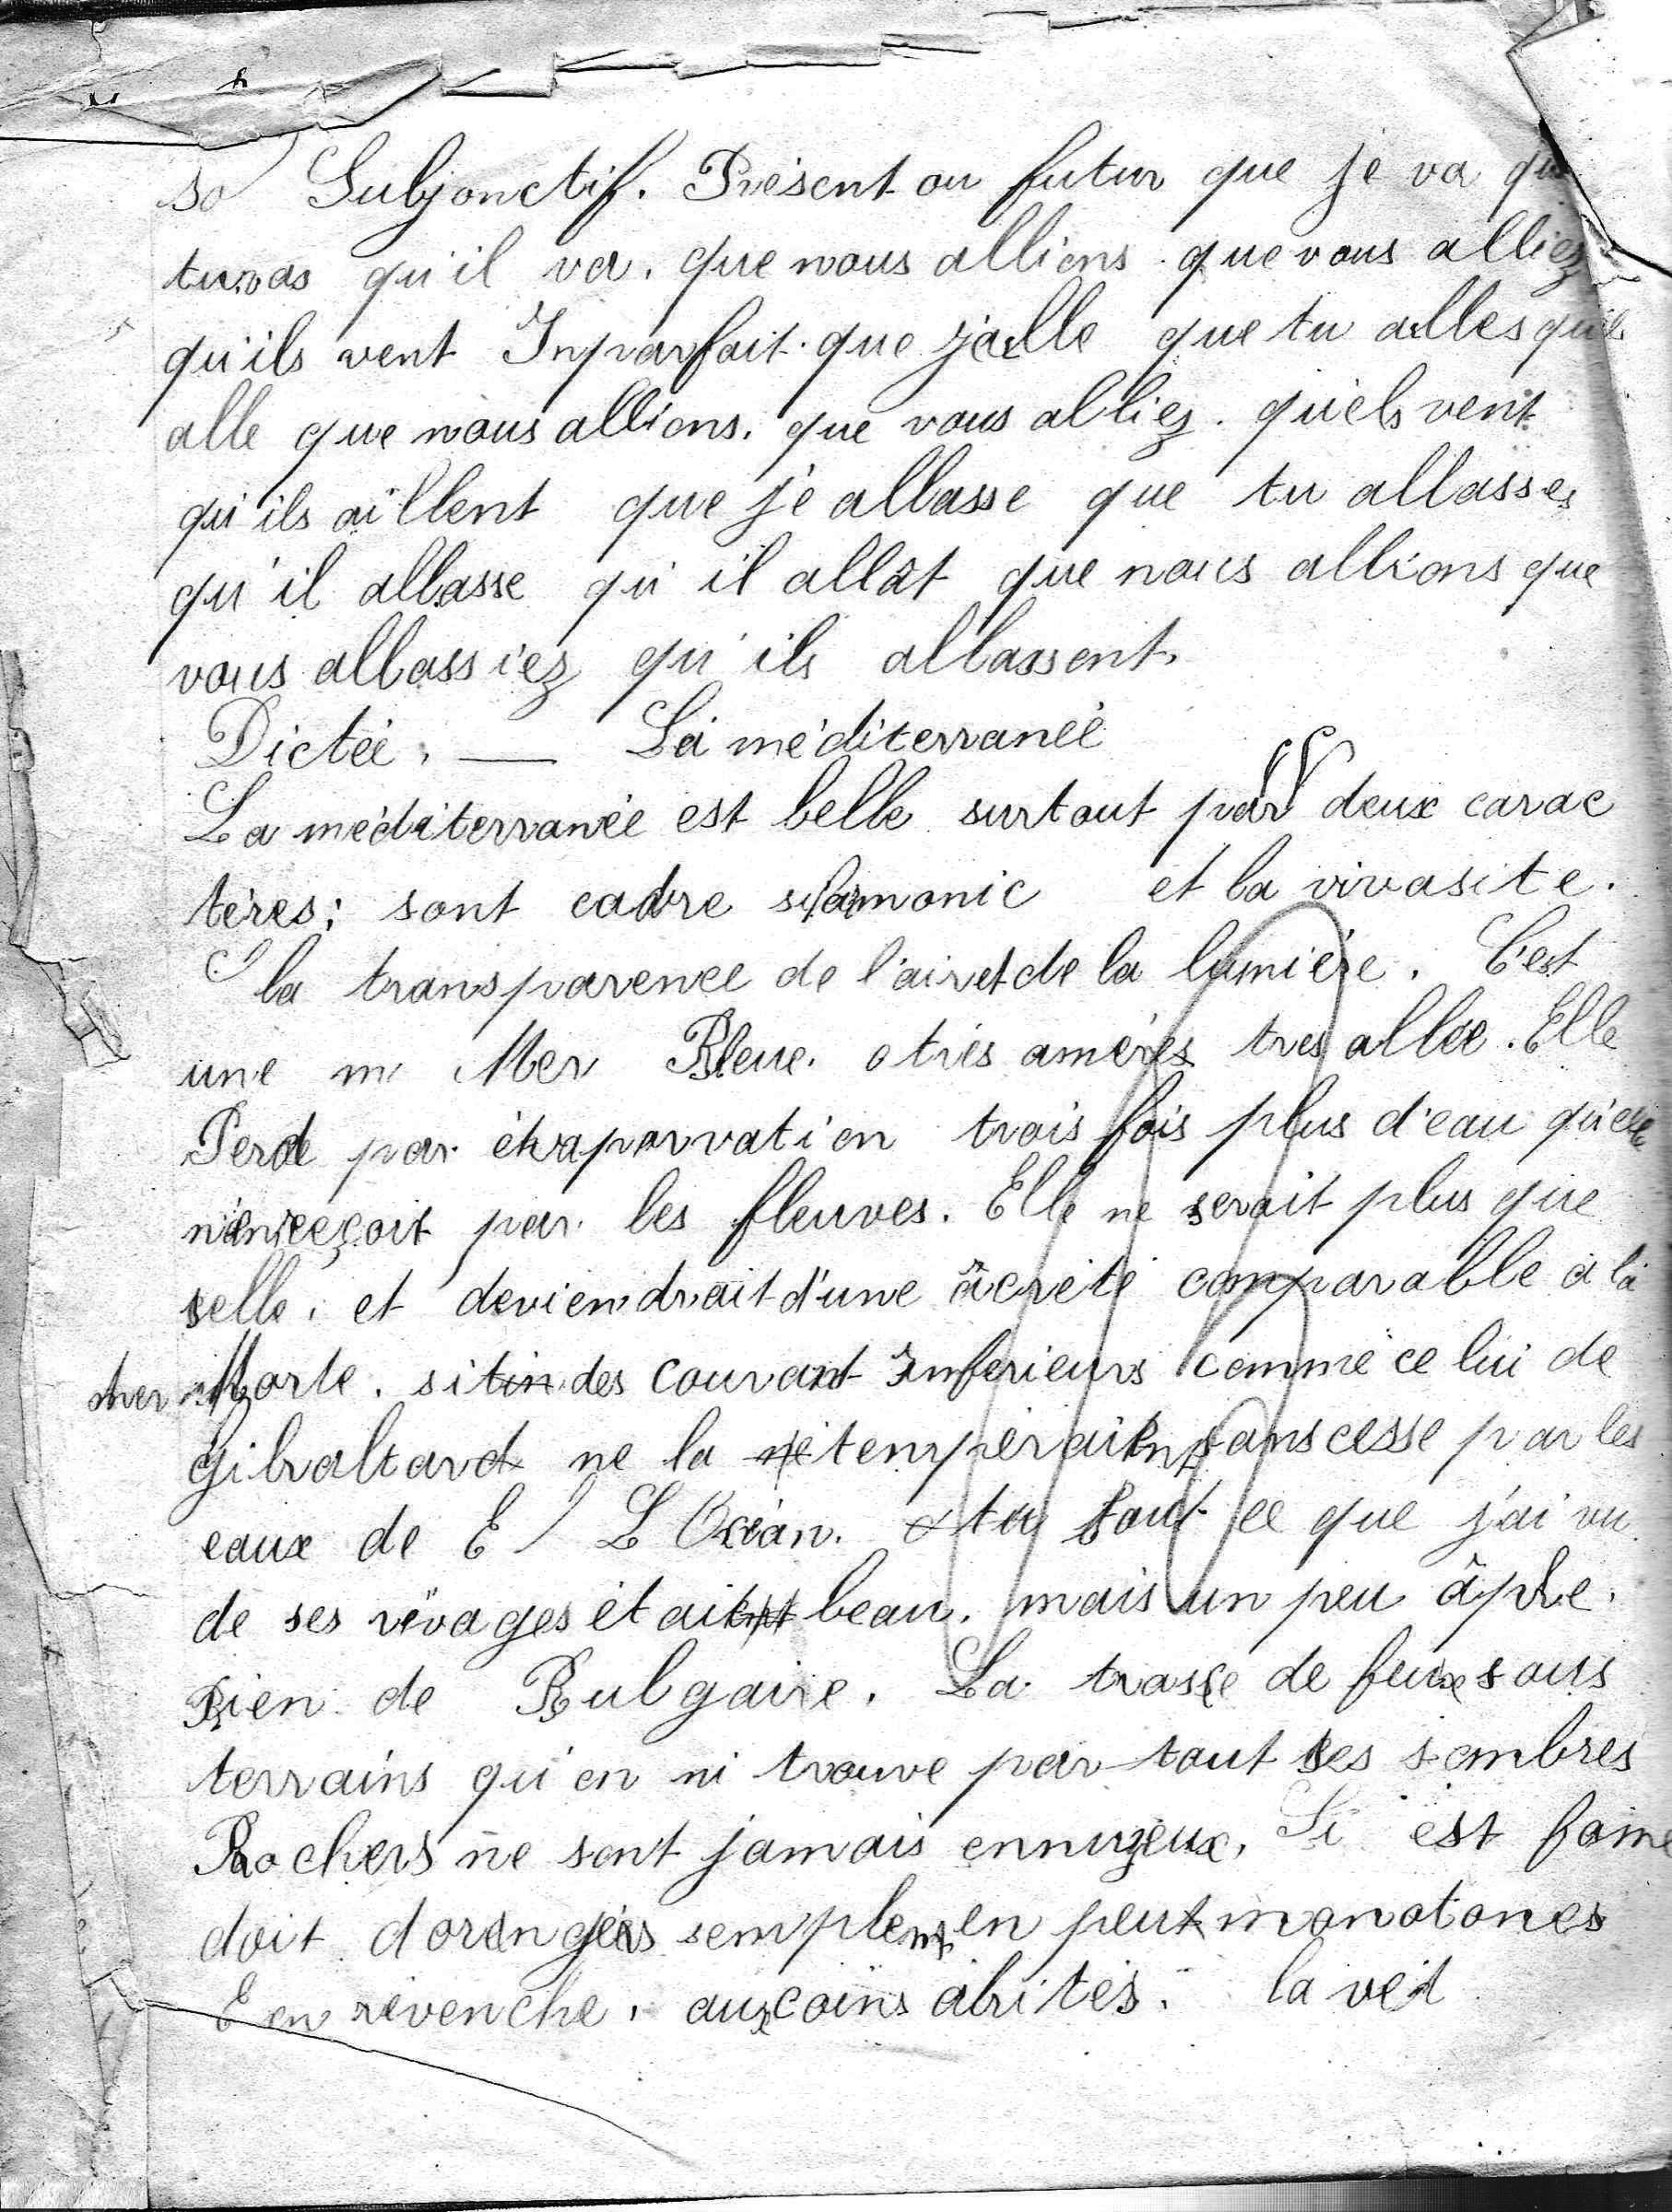 so Subjonctif. Présent ou futur que je va que
tu vas qu'il va. que nous allions que vous alliez
qu'ils vent Inparfait. que j'alle que tu alles qu'il
alle que nous allions. que vous alliez. qu'els vent
qu'ils aillent que je allasse que tu allasses
qu'il allasse qu'il allât que nous allions que
vous allassiez qu'ils allassent.
Dictée. — La méditerranée
La méditerranée est belle surtout par deux carac
tères; sont cadre et la vivasite.
la transparence de l'air et de la lumière. C'est
une m Mer Bleue. très amères tres allée. Elle
Perd par évaporvation trois fois plus d'eau qu'elle
n'enreçoit par les fleuves. Elle ne serait plus que
selle. et deviendrait d'une âcreté comparable a la
mer Morte. si des courant Inferieurs comme ce lui de
Gibraltard ne la tempéraient sans cesse par les
eaux de E L Océan. tout ce que j'ai vu
de ses rivages était beau. mais un peu âpre.
Rien de Bulgaire. La trasse de feux sous
terrains qu'en ni trouve par tout ses sombres
Rochers ne sont jamais ennuyeux. Si est fame
doit dorengers semplent en peut monotones
E en revenche. aux coins abrités. la veit